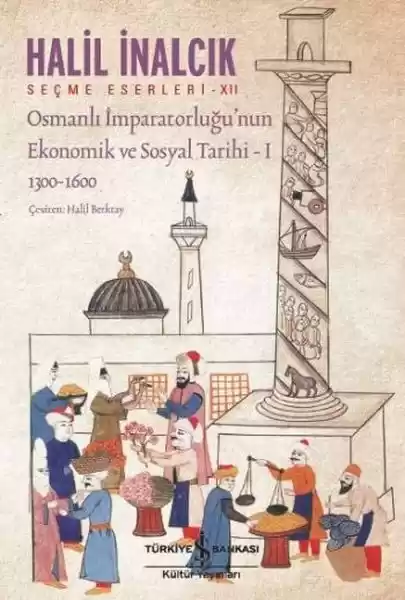 HALİL İNALCIK
SEÇME ESERLERİ - XII
Osmanlı İmparatorluğu'nun
Ekonomik ve Sosyal Tarihi - I
1300-1600
Çeviren: Halil Berktay
TÜRKİYE İŞ BANKASI
Kültür Yayınları